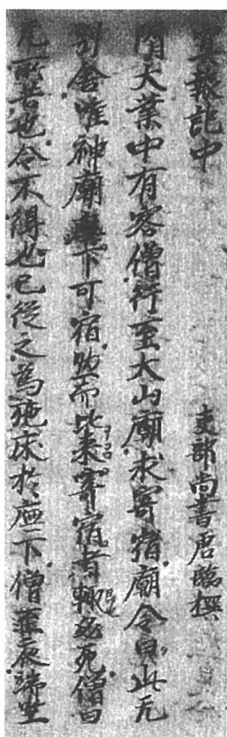 冥報記中 吏部尚書唐臨撰
隋大業中有客僧行至太山廟求寄宿廟令曰此无
別舍唯神廟廡下可宿然而比来寄宿者輙必死僧曰
无所苦也令不得已従之為施床於廡下僧至夜端坐